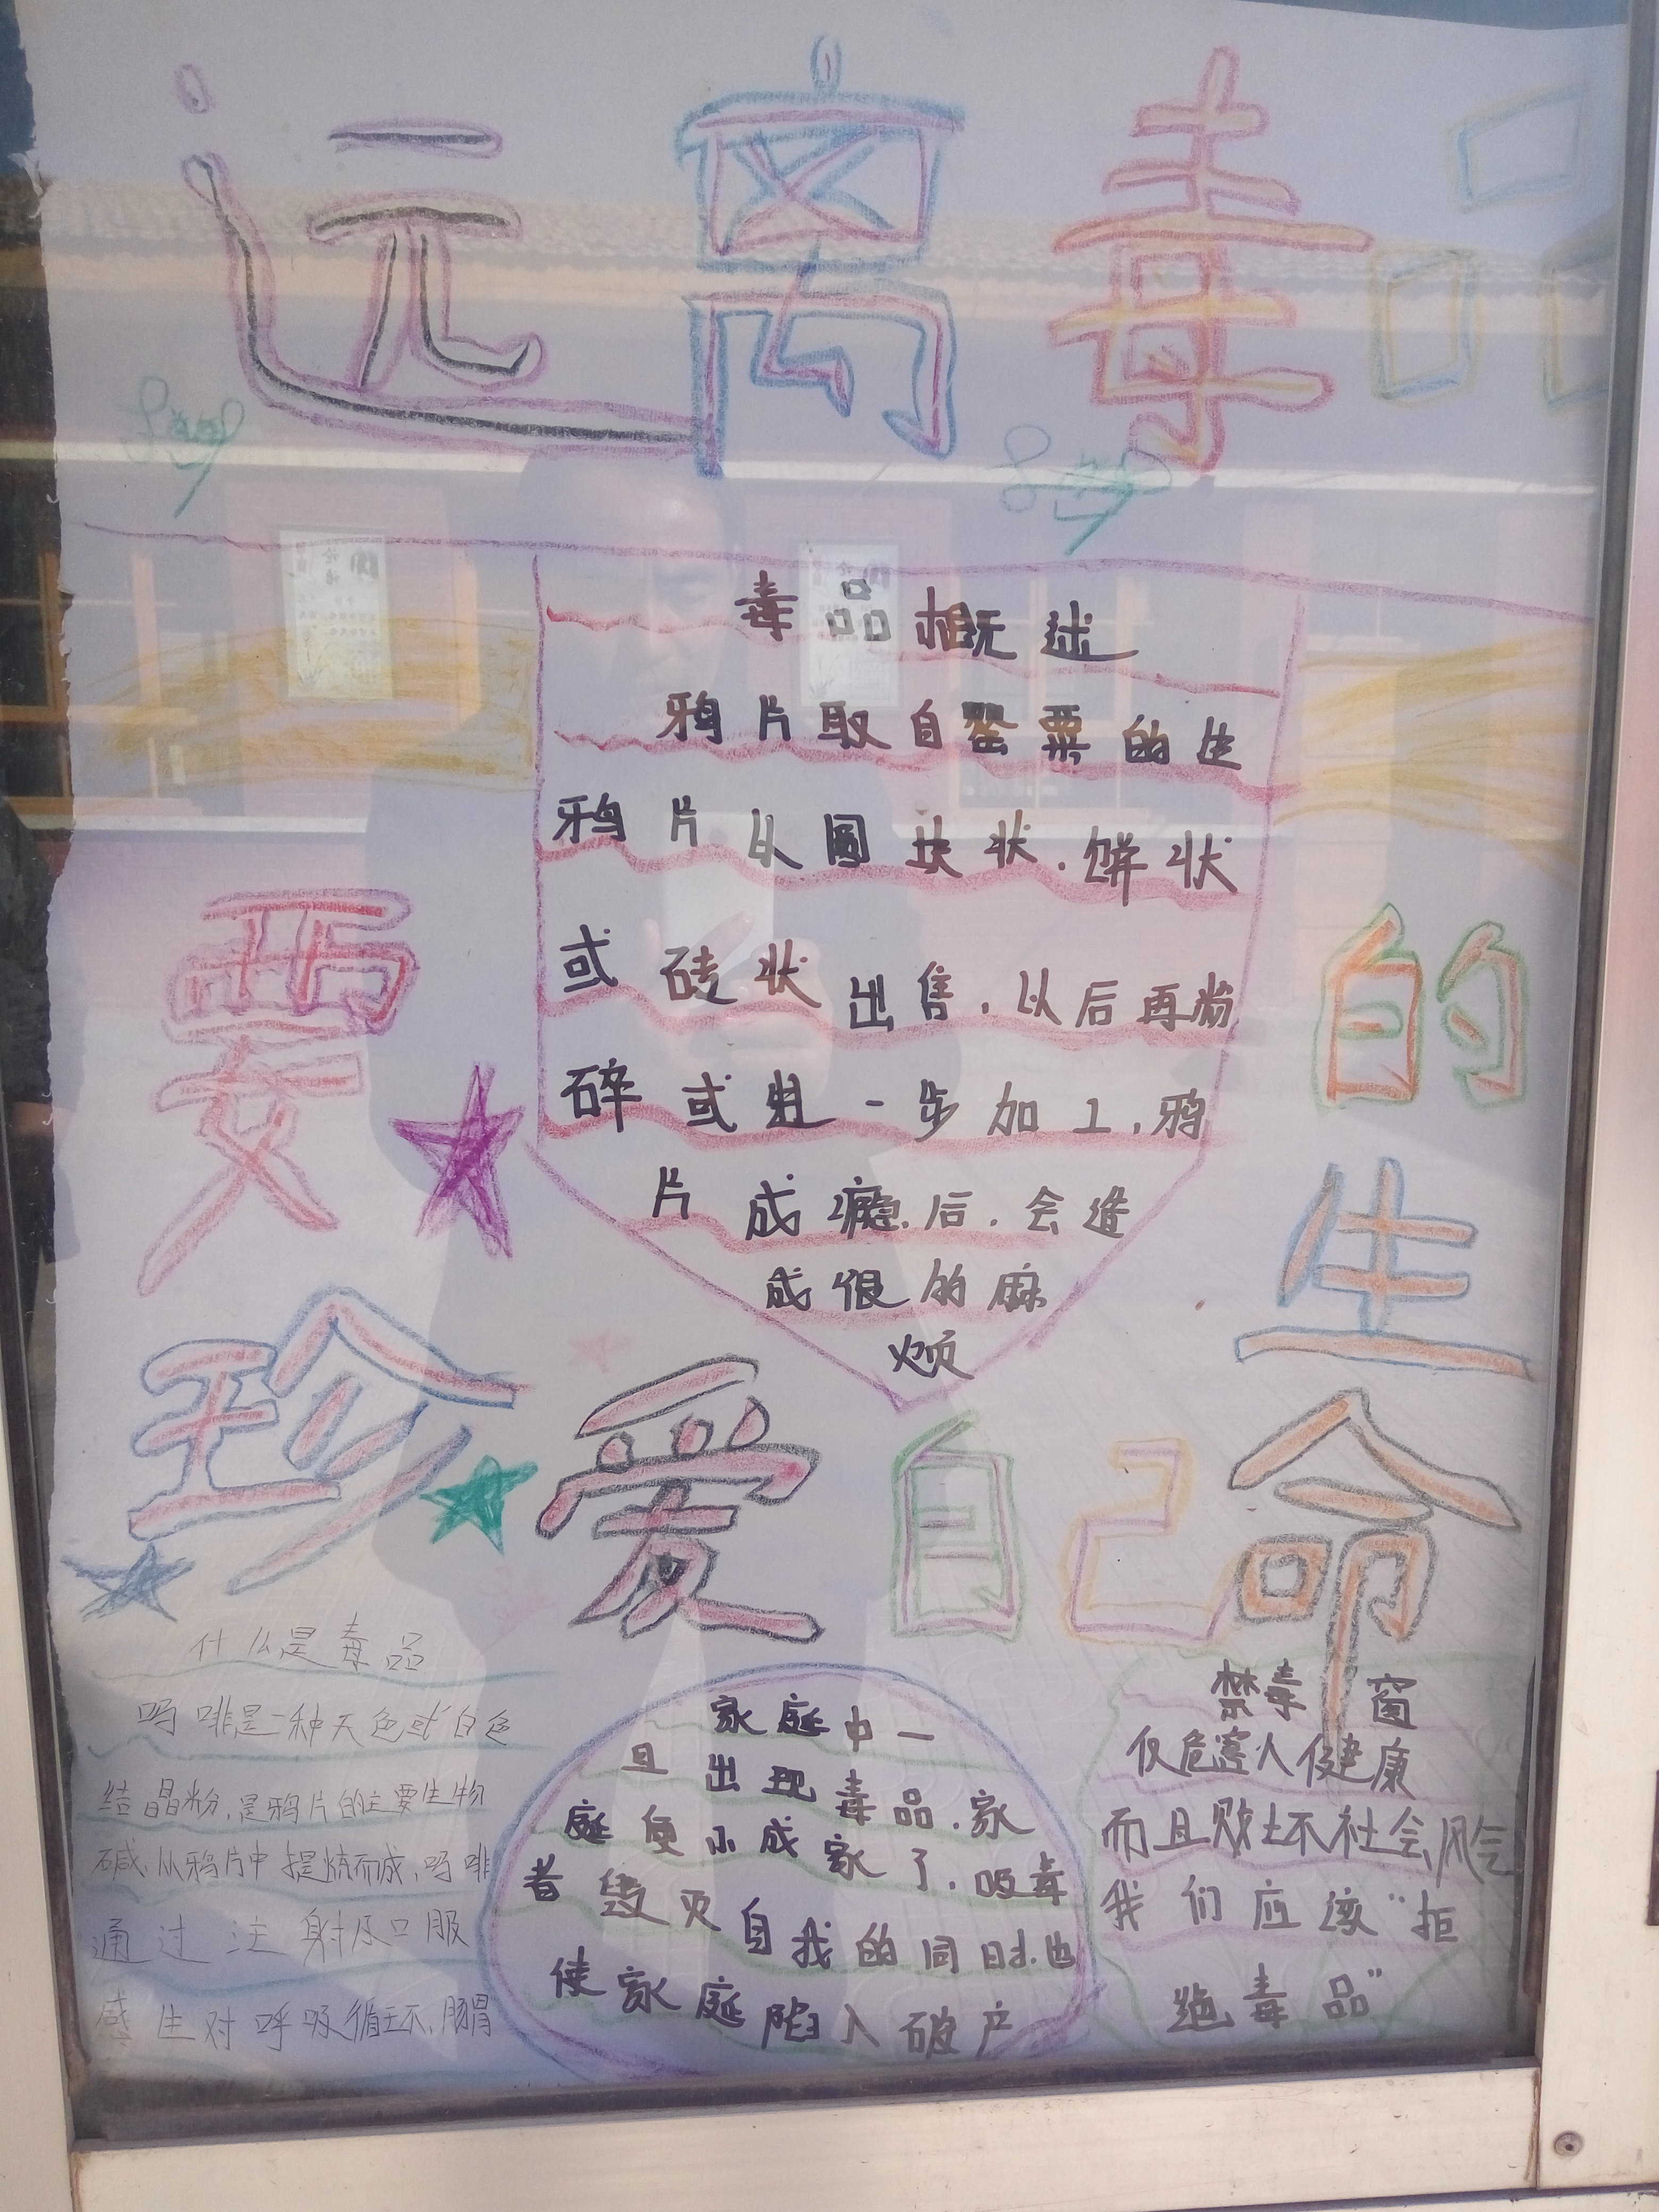 远离毒品
毒品概述
鸦片取自罂粟的
鸦片以圆块状.饼状
或砖状出售,以后再粉
碎或进一步加工,鸦
片成瘾后.会造
成很的麻
烦
要
珍爱自己
的
生
命
什么是毒品
吗啡是一种无色或白色
结晶粉,是鸦片的主要生物
碱.从鸦片中提炼而成,吗啡
通过注射及口服
感 对呼吸循环,肠胃
家庭中一
旦出现毒品.家
庭便不成家了.吸毒
者毁灭自我的同时.也
使家庭陷入破产
禁毒 窗
仅危害人健康
而且败坏社会风气
我们应该“拒
绝毒品”